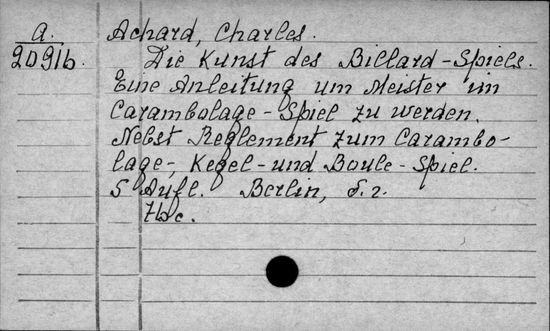 a.
20916.
Achard, Charles.
Die Kunst des Billard-Spiels.
Eine Anleitung um Meister im
Carambolage-Spiel zu werden.
Nebst Reglement zum Carambo-
lage-, Kegel- und Boule-Spiel.
5 Aufl. Berlin,